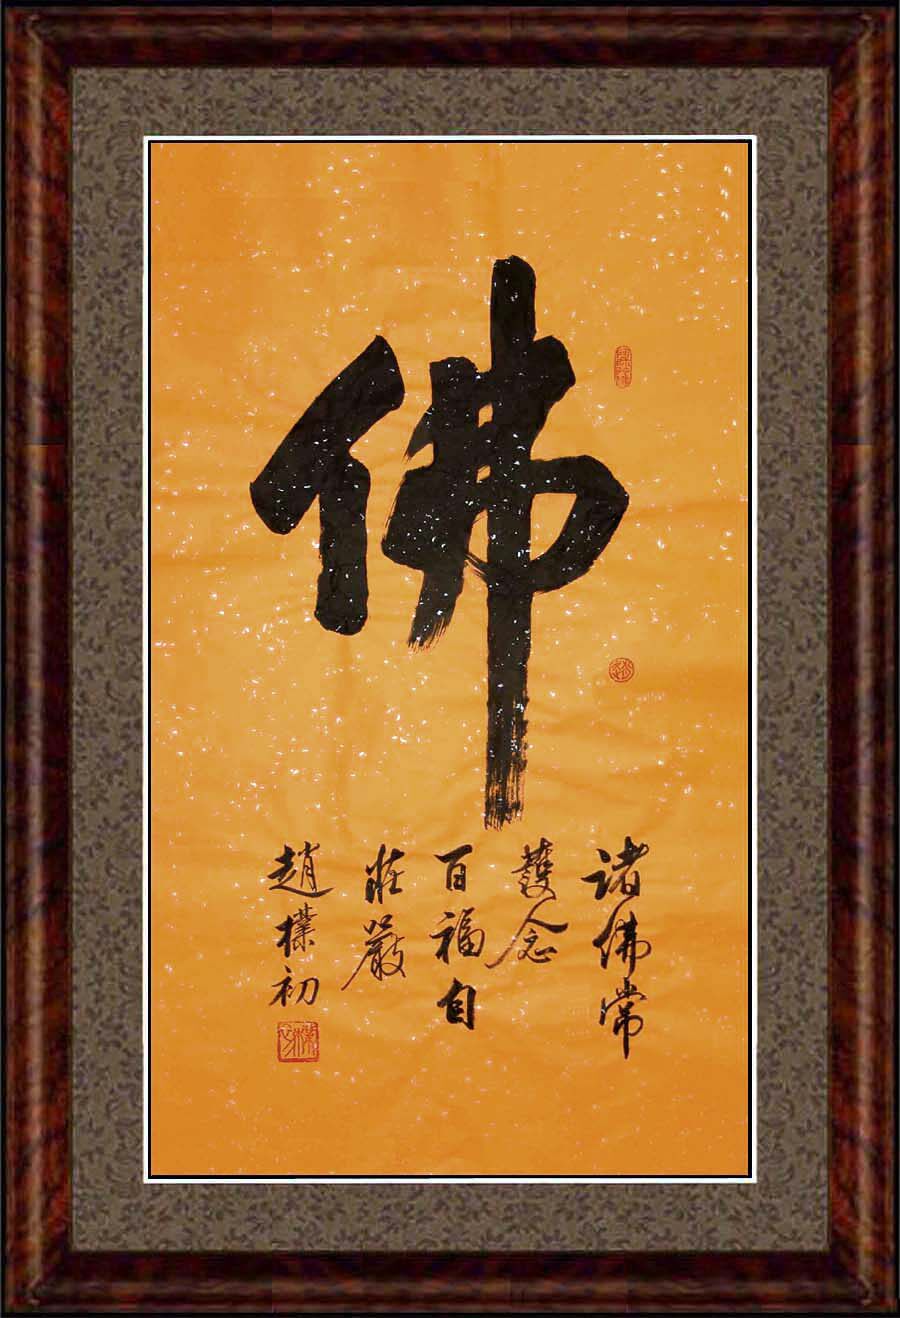 佛
诸佛常
護念
百福自
莊嚴
趙樸初